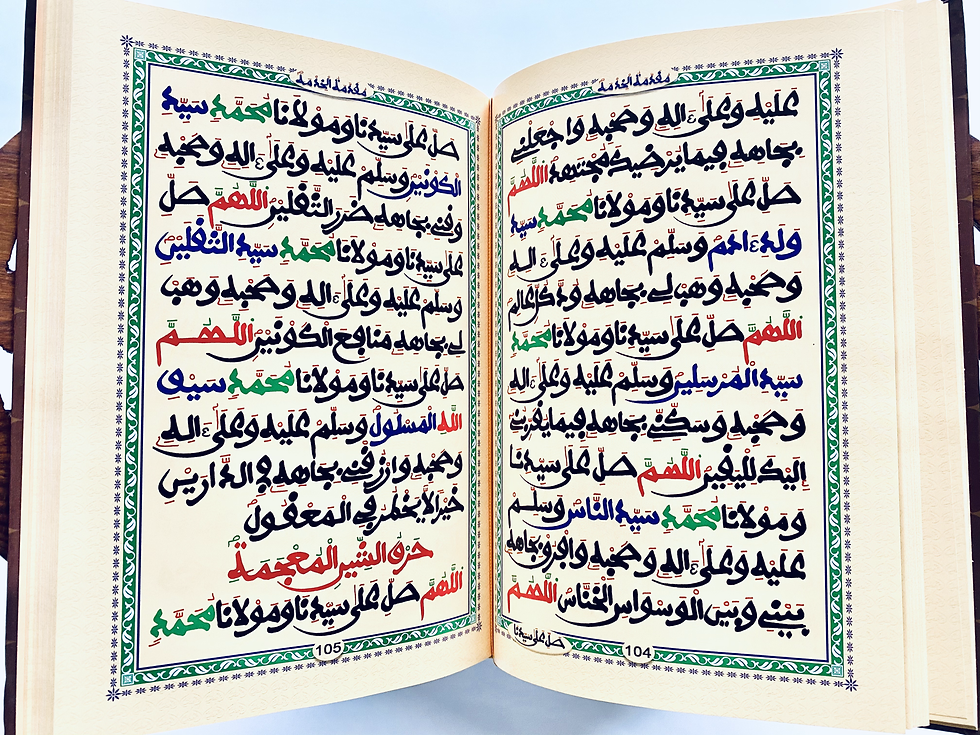 مقدمة الخدمة
عليه وعلىءاله وصحبه واجعلني
بجاهه فيما يرضيك مجتهدا اللهم
صل على سيدنا ومولانا محمد سيد
ولدءادم وسلم عليه وعلىءاله
وصحبه وهب لي بجاهه ود كل عالم
اللهم صل على سيدنا ومولانا محمد
سيد المرسلين وسلم عليه وعلىءاله
وصحبه وسكني بجاهه فيما يقرب
إليك لليقين اللهم صل على سيدنا
ومولانا محمد سيد الناس وسلم
عليه وعلىءاله وصحبه وافرق بجاهه
بيني وبين الوسواس الخناس اللهم
صل على سيدنا
104
مقدمة الخدمة
صل على سيدنا ومولانا محمد سيد
الكونين وسلم عليه وعلىءاله وصحبه
وقني بجاهه ضرر الثقلين اللهم صل
على سيدنا ومولانا محمد سيد الثقلين
وسلم عليه وعلىءاله وصحبه وهب
لي بجاهه منافع الكونين اللهم
صل على سيدنا ومولانا محمد سيف
الله المسلول وسلم عليه وعلىءاله
وصحبه وارزقني بجاهه في الدارين
خيرا لا يخطر في المعقول
حرف الشين المعجمة
اللهم صل على سيدنا ومولانا محمد
105